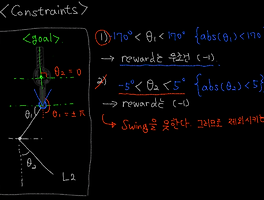 < Constraints >
<goal>
θ₂=0
θ₁
θ₁=±π
θ₂
L2
1) -170°< θ₁ < 170° {abs(θ₁)<170
→ reward는 무조건 (-1)
2) -5° < θ₂ < 5° {abs(θ₂)<5°}
→ reward는 (-1)
→ Swing을 못한다. 그러므로 제외시키는